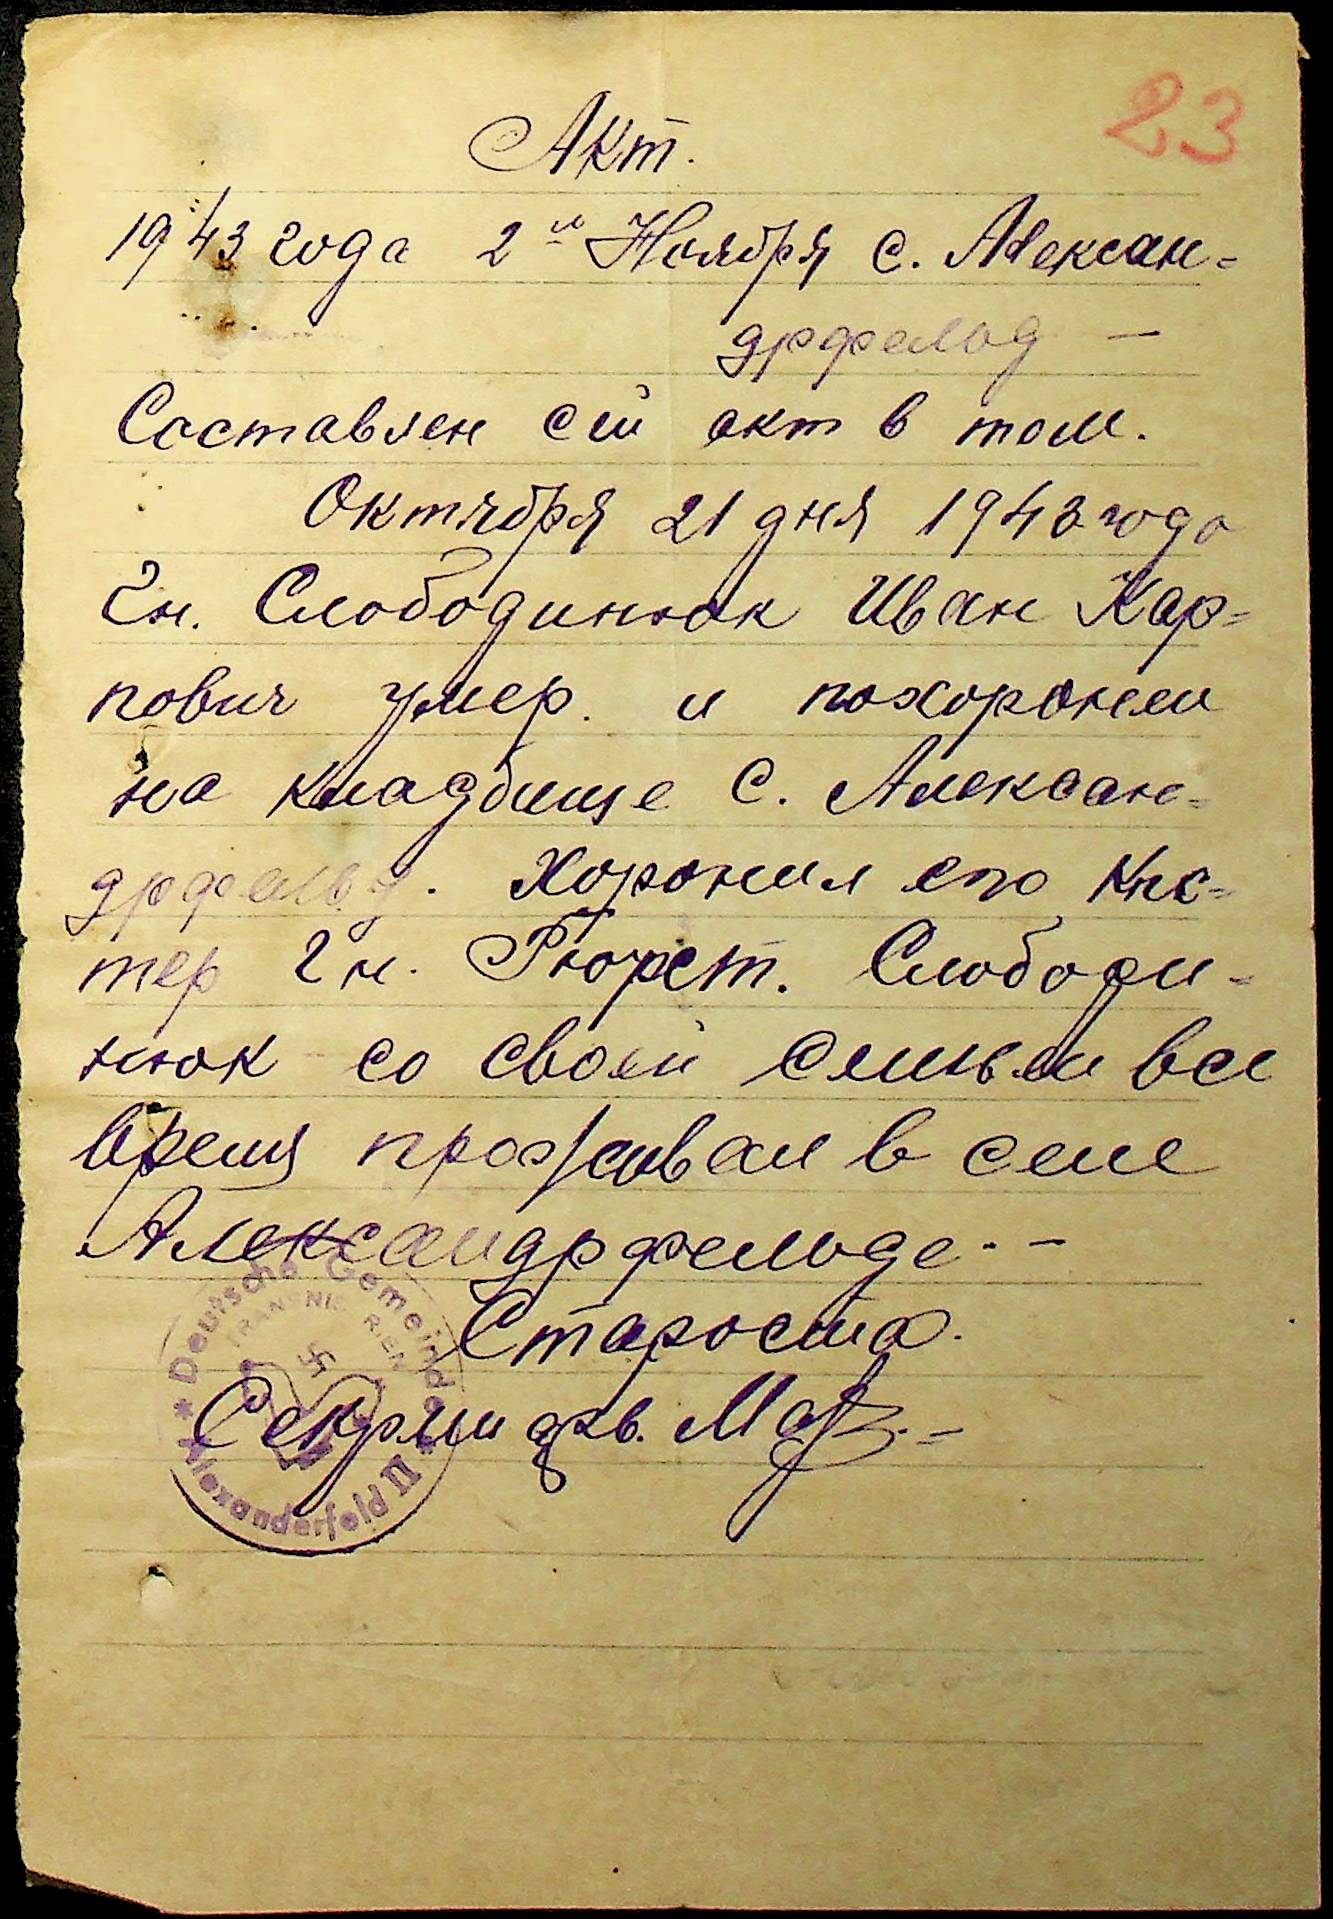 23
Акт.
1943 года 2го Ноября с. Алексан-
дрфельд —
Составлен сей акт в том.
Октября 21 дня 1943 года
Гн. Слободинюк Иван Кар-
пович умер. и похоронен
на кладбище с. Алексан-
дрфельд. Хоронил его Кис-
тер Гн. Фюрст. Слободи-
нюк со своей семьей все
время проживал в селе
Александрфельде. —
Староста.
Deutsche Gemeinde
TRANSNISTRIEN
Alexanderfeld II